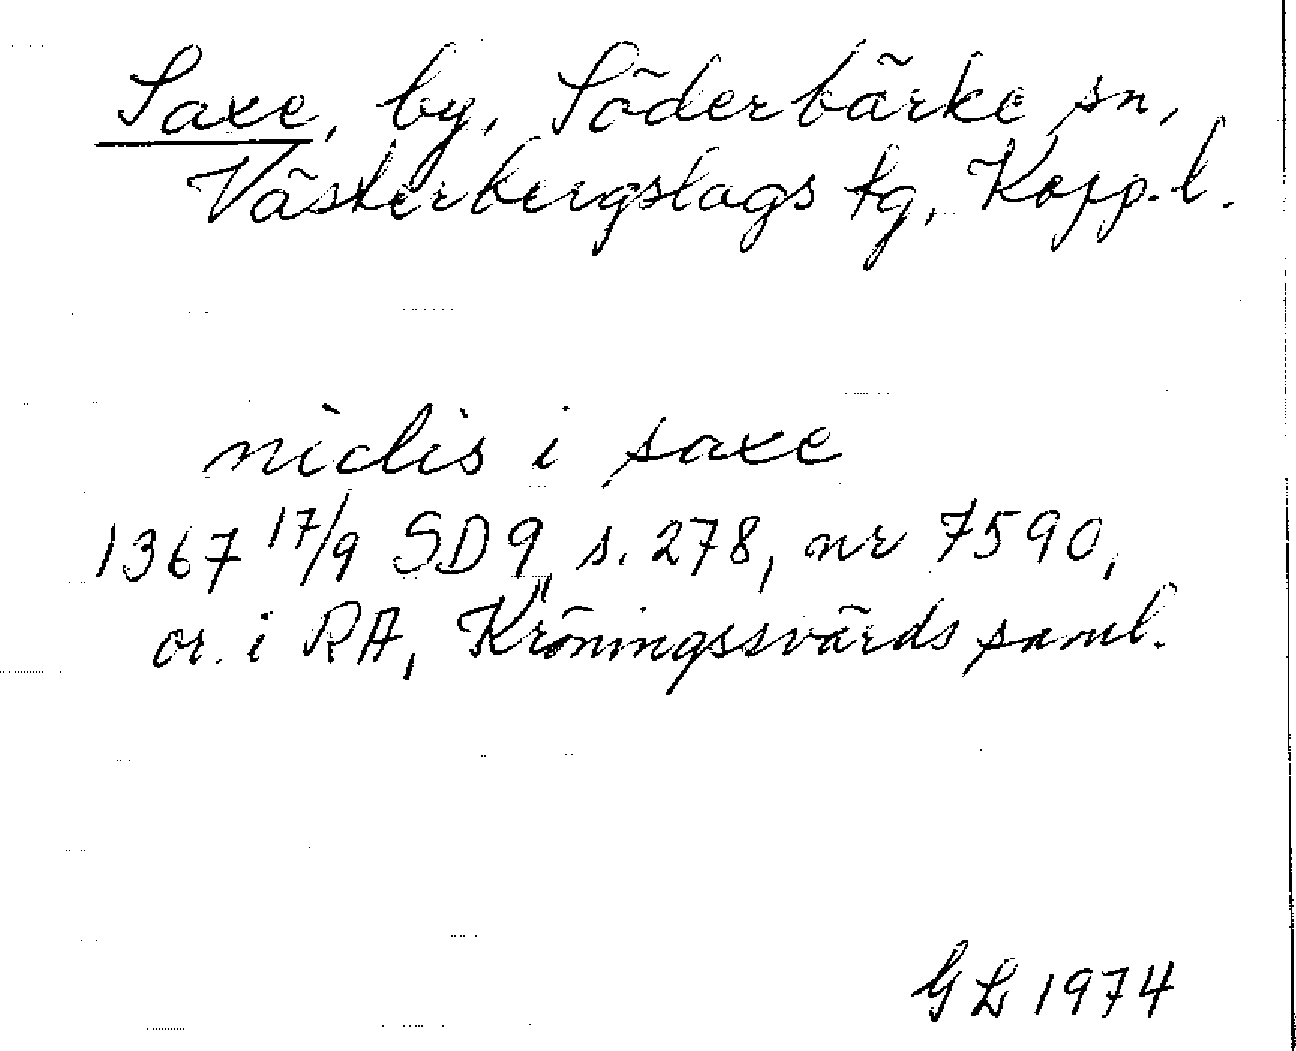 Saxe, by, Söderbärke sn,
Västerbergslags tg, Kopp. l.
niclis i saxe
1367 17/9 SD 9, s. 278, nr 7590,
or. i RA, Kröningssvärds saml.
GL 1974